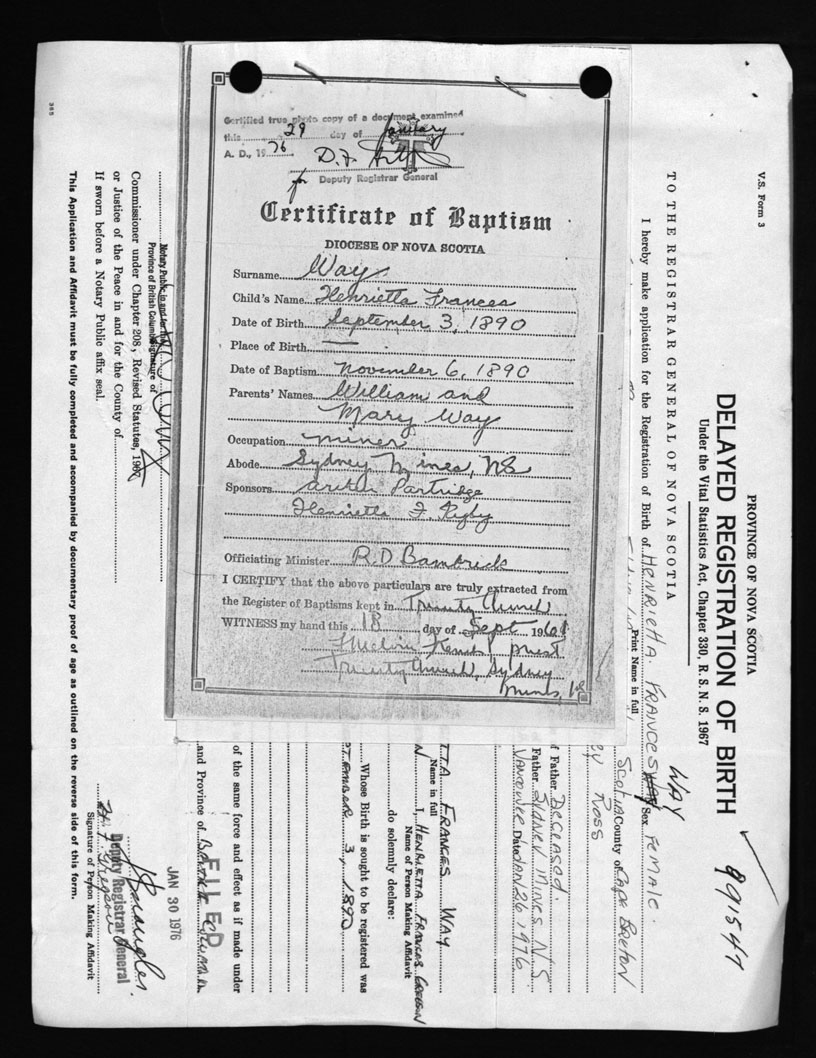 Certified true photo copy of a document examined
this 29 day of January
A. D., 1976
D. F.
for Deputy Registrar General
Certificate of Baptism
DIOCESE OF NOVA SCOTIA
Surname Way
Child's Name Henrietta Frances
Date of Birth September 3, 1890
Place of Birth —
Date of Baptism November 6, 1890
Parents' Names William and
Mary Way
Occupation miner
Abode Sydney Mines, NS
Sponsors Partridge
Henrietta F. Rigby
Officiating Minister R D Bambrick
I CERTIFY that the above particulars are truly extracted from
the Register of Baptisms kept in Trinity Church
WITNESS my hand this 18 day of Sept 196
priest
Trinity Church, Sydney
Mines, NS
V.S. Form 3
PROVINCE OF NOVA SCOTIA
DELAYED REGISTRATION OF BIRTH
Under the Vital Statistics Act, Chapter 330, R. S. N. S. 1967
991547
TO THE REGISTRAR GENERAL OF NOVA SCOTIA
WAY
I hereby make application for the Registration of Birth of HENRIETTA FRANCES WAY Sex Female.
Print Name in full
Scotia County of Cape Breton
Ross
f Father Deceased.
Father Sidney Mines N.S.
Vancouver Date Jan 26 1976
TTA FRANCES WAY
Name in full
N I, HENRIETTA FRANCES GREGSON
Name of Person Making Affidavit
do solemnly declare:
Whose Birth is sought to be registered was
TEMBER 3, 1890
of the same force and effect as if made under
and Province of British Columbia
FILED
JAN 30 1976
Deputy Registrar General
H. F. Gregson
Signature of Person Making Affidavit
Notary Public in and for the
Province of British Columbia
Signature of
Commissioner under Chapter 208, Revised Statutes, 19
or Justice of the Peace in and for the County of
If sworn before a Notary Public affix seal.
This Application and Affidavit must be fully completed and accompanied by documentary proof of age as outlined on the reverse side of this form.
365